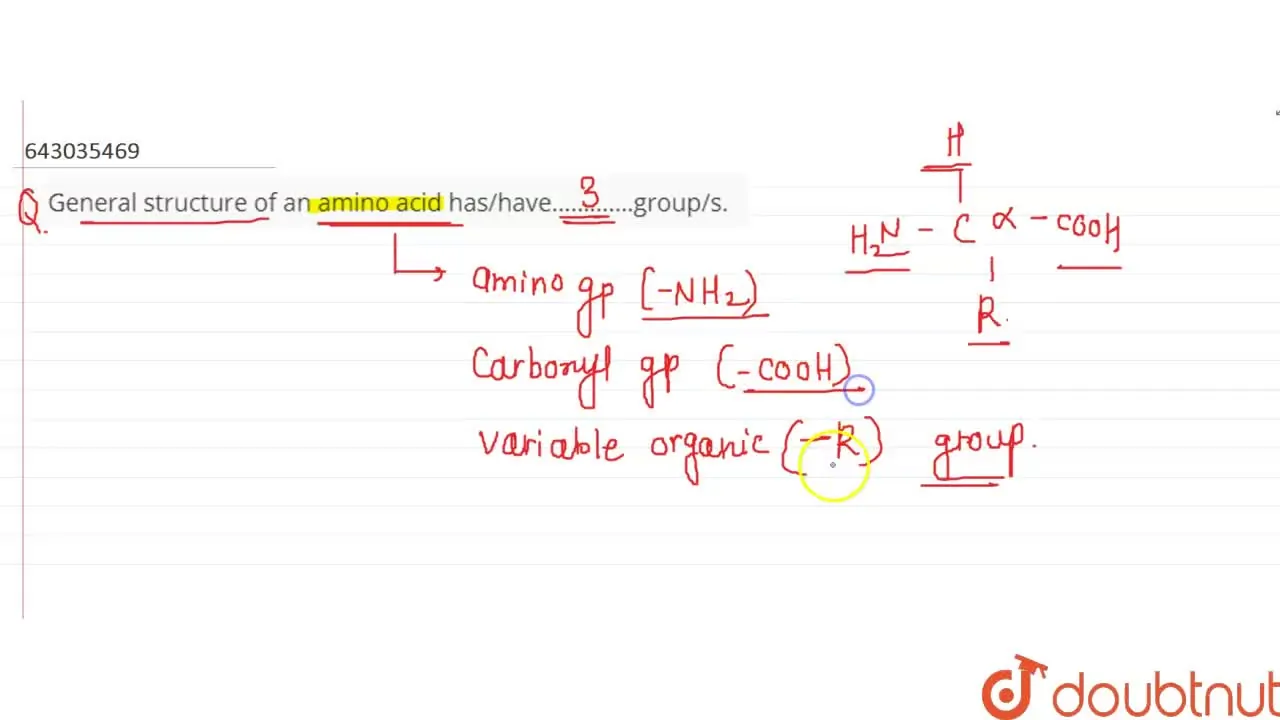 643035469
Q. General structure of an amino acid has/have......3.......group/s.
amino gp (-NH2)
Carbonyl gp (-COOH)
variable organic (-R) group.
H
H2N - C α - COOH
R.
doubtnut